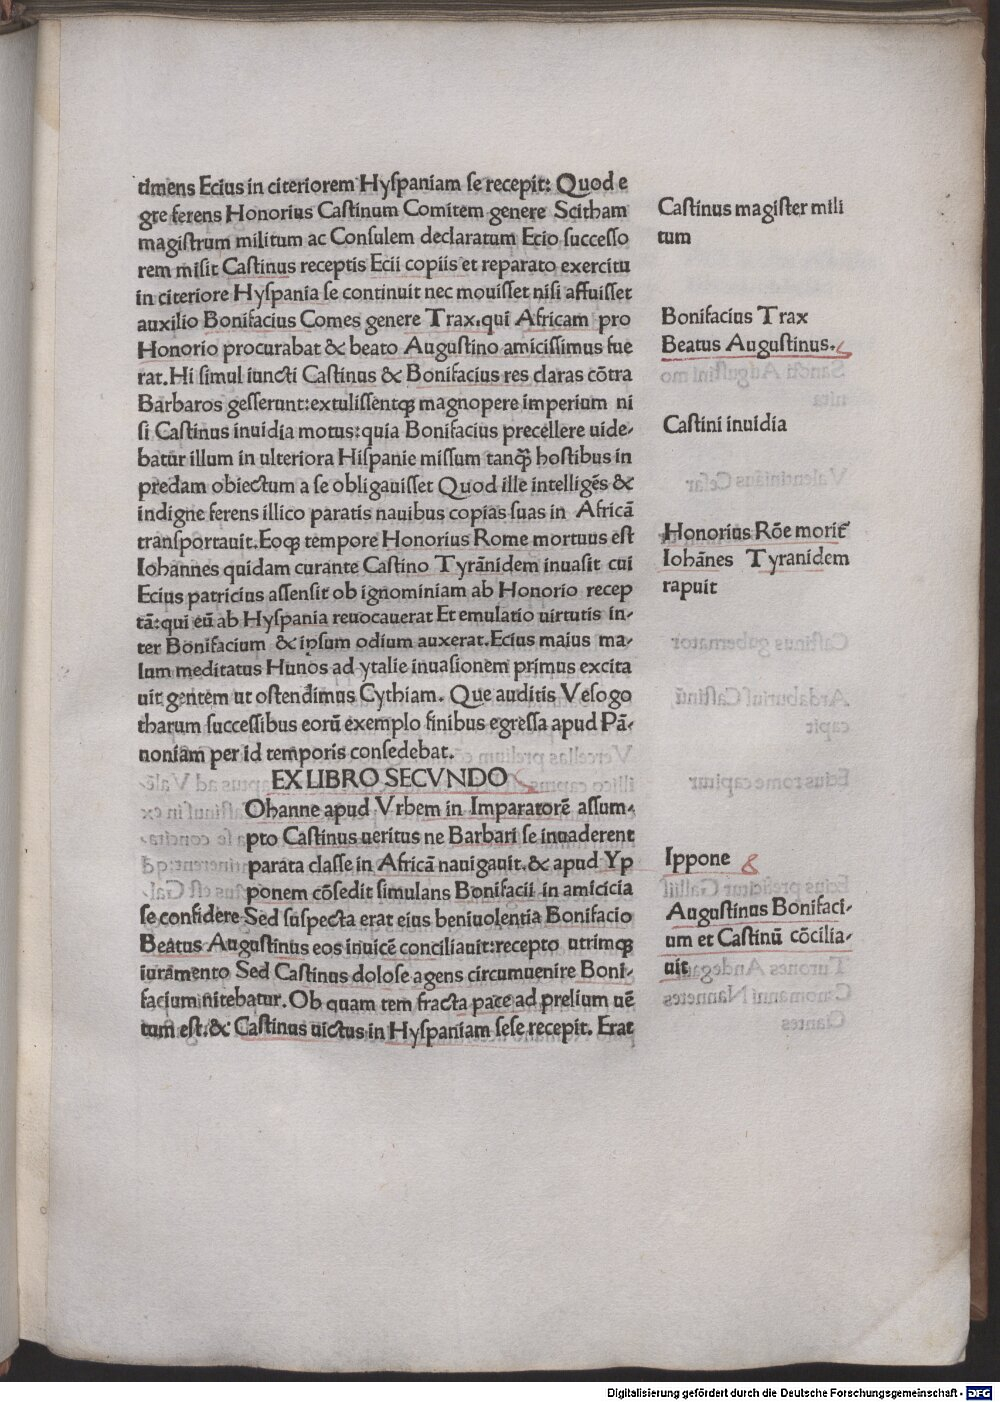 timens Ecius in citeriorem Hyſpaniam ſe recepit: Quod e
gre ferens Honorius Caſtinum Comitem genere Scitham
magiſtrum militum ac Conſulem declaratum Ecio ſucceſſo
rem miſit Caſtinus receptis Ecii copiis et reparato exercitu
in citeriore Hyſpania ſe continuit nec mouiſſet niſi affuiſſet
auxilio Bonifacius Comes genere Trax.qui Africam pro
Honorio procurabat & beato Auguſtino amiciſſimus fue
rat.Hi ſimul iuncti Caſtinus & Bonifacius res claras cōtra
Barbaros geſſerunt:extuliſſentqꝫ magnopere imperium ni
ſi Caſtinus inuidia motus:quia Bonifacius precellere uide-
batur illum in ulteriora Hiſpanie miſſum tanqꝫ hoſtibus in
predam obiectum a ſe obligauiſſet Quod ille intelligēs &
indigne ferens illico paratis nauibus copias ſuas in Africā
tranſportauit.Eoqꝫ tempore Honorius Rome mortuus eſt
Iohannes quidam curante Caſtino Tyrānidem inuaſit cui
Ecius patricius aſſenſit ob ignominiam ab Honorio recep
tā:qui eū ab Hyſpania reuocauerat Et emulatio uirtutis in-
ter Bonifacium & ipſum odium auxerat.Ecius maius ma-
lum meditatus Hunos ad ytalie inuaſionem primus excita
uit gentem ut oſtendimus Cythiam. Que auditis Veſogo
tharum ſucceſſibus eorū exemplo finibus egreſſa apud Pā-
noniam per id temporis conſedebat.
EX LIBRO SECVNDO
Ohanne apud Vrbem in Imparatorē aſſum-
pto Caſtinus ueritus ne Barbari ſe inuaderent
parata claſſe in Africā nauigauit.& apud Yp
ponem cōſedit ſimulans Bonifacii in amicicia
ſe confidere Sed ſuſpecta erat eius beniuolentia Bonifacio
Beatus Auguſtinus eos inuicē conciliauit:recepto utrimqꝫ
iuramento Sed Caſtinus doloſe agens circumuenire Boni-
facium nitebatur. Ob quam rem fracta pace ad prelium uē
tum eſt.& Caſtinus uictus in Hyſpaniam ſeſe recepit. Erat
Caſtinus magiſter mili
tum
Bonifacius Trax
Beatus Auguſtinus.
Caſtini inuidia
Honorius Rōe morit᷑
Iohānes Tyranidem
rapuit
Ippone
Auguſtinus Bonifaci-
um et Caſtinū cōcilia-
uit
Digitalisierung gefördert durch die Deutsche Forschungsgemeinschaft - DFG